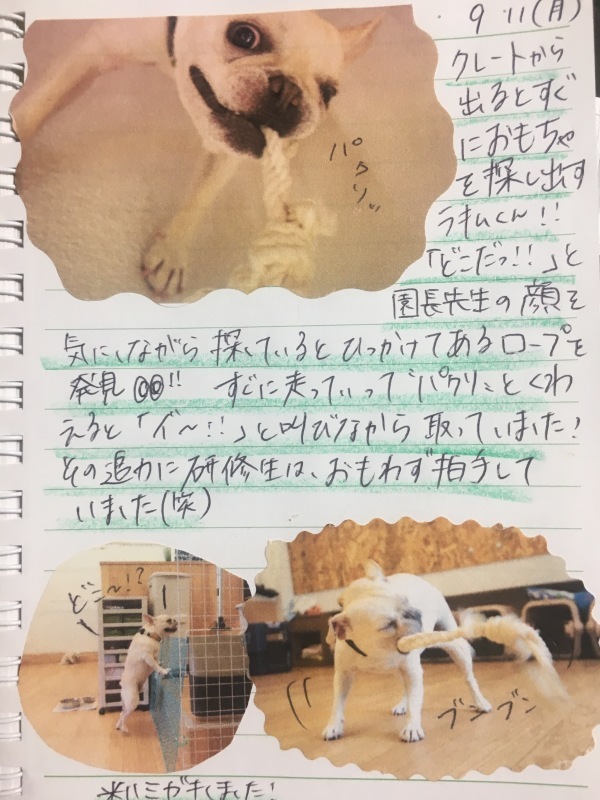 9.11(月)
クレートから
出るとすぐ
におもちゃ
を探し出す
ラキムくん!!
「どこだっ!!」と
園長先生の顔を
気にしながら探しているとひっかけてあるロープを
発見!! すぐに走っていって"パクリ"とくわ
えると「イ〜!!」と叫びながら取っていました!
その迫力に研修生は、おもわず拍手して
いました(笑)
パクリッ
どこ〜!?
ブンブン
ハミガキしました!